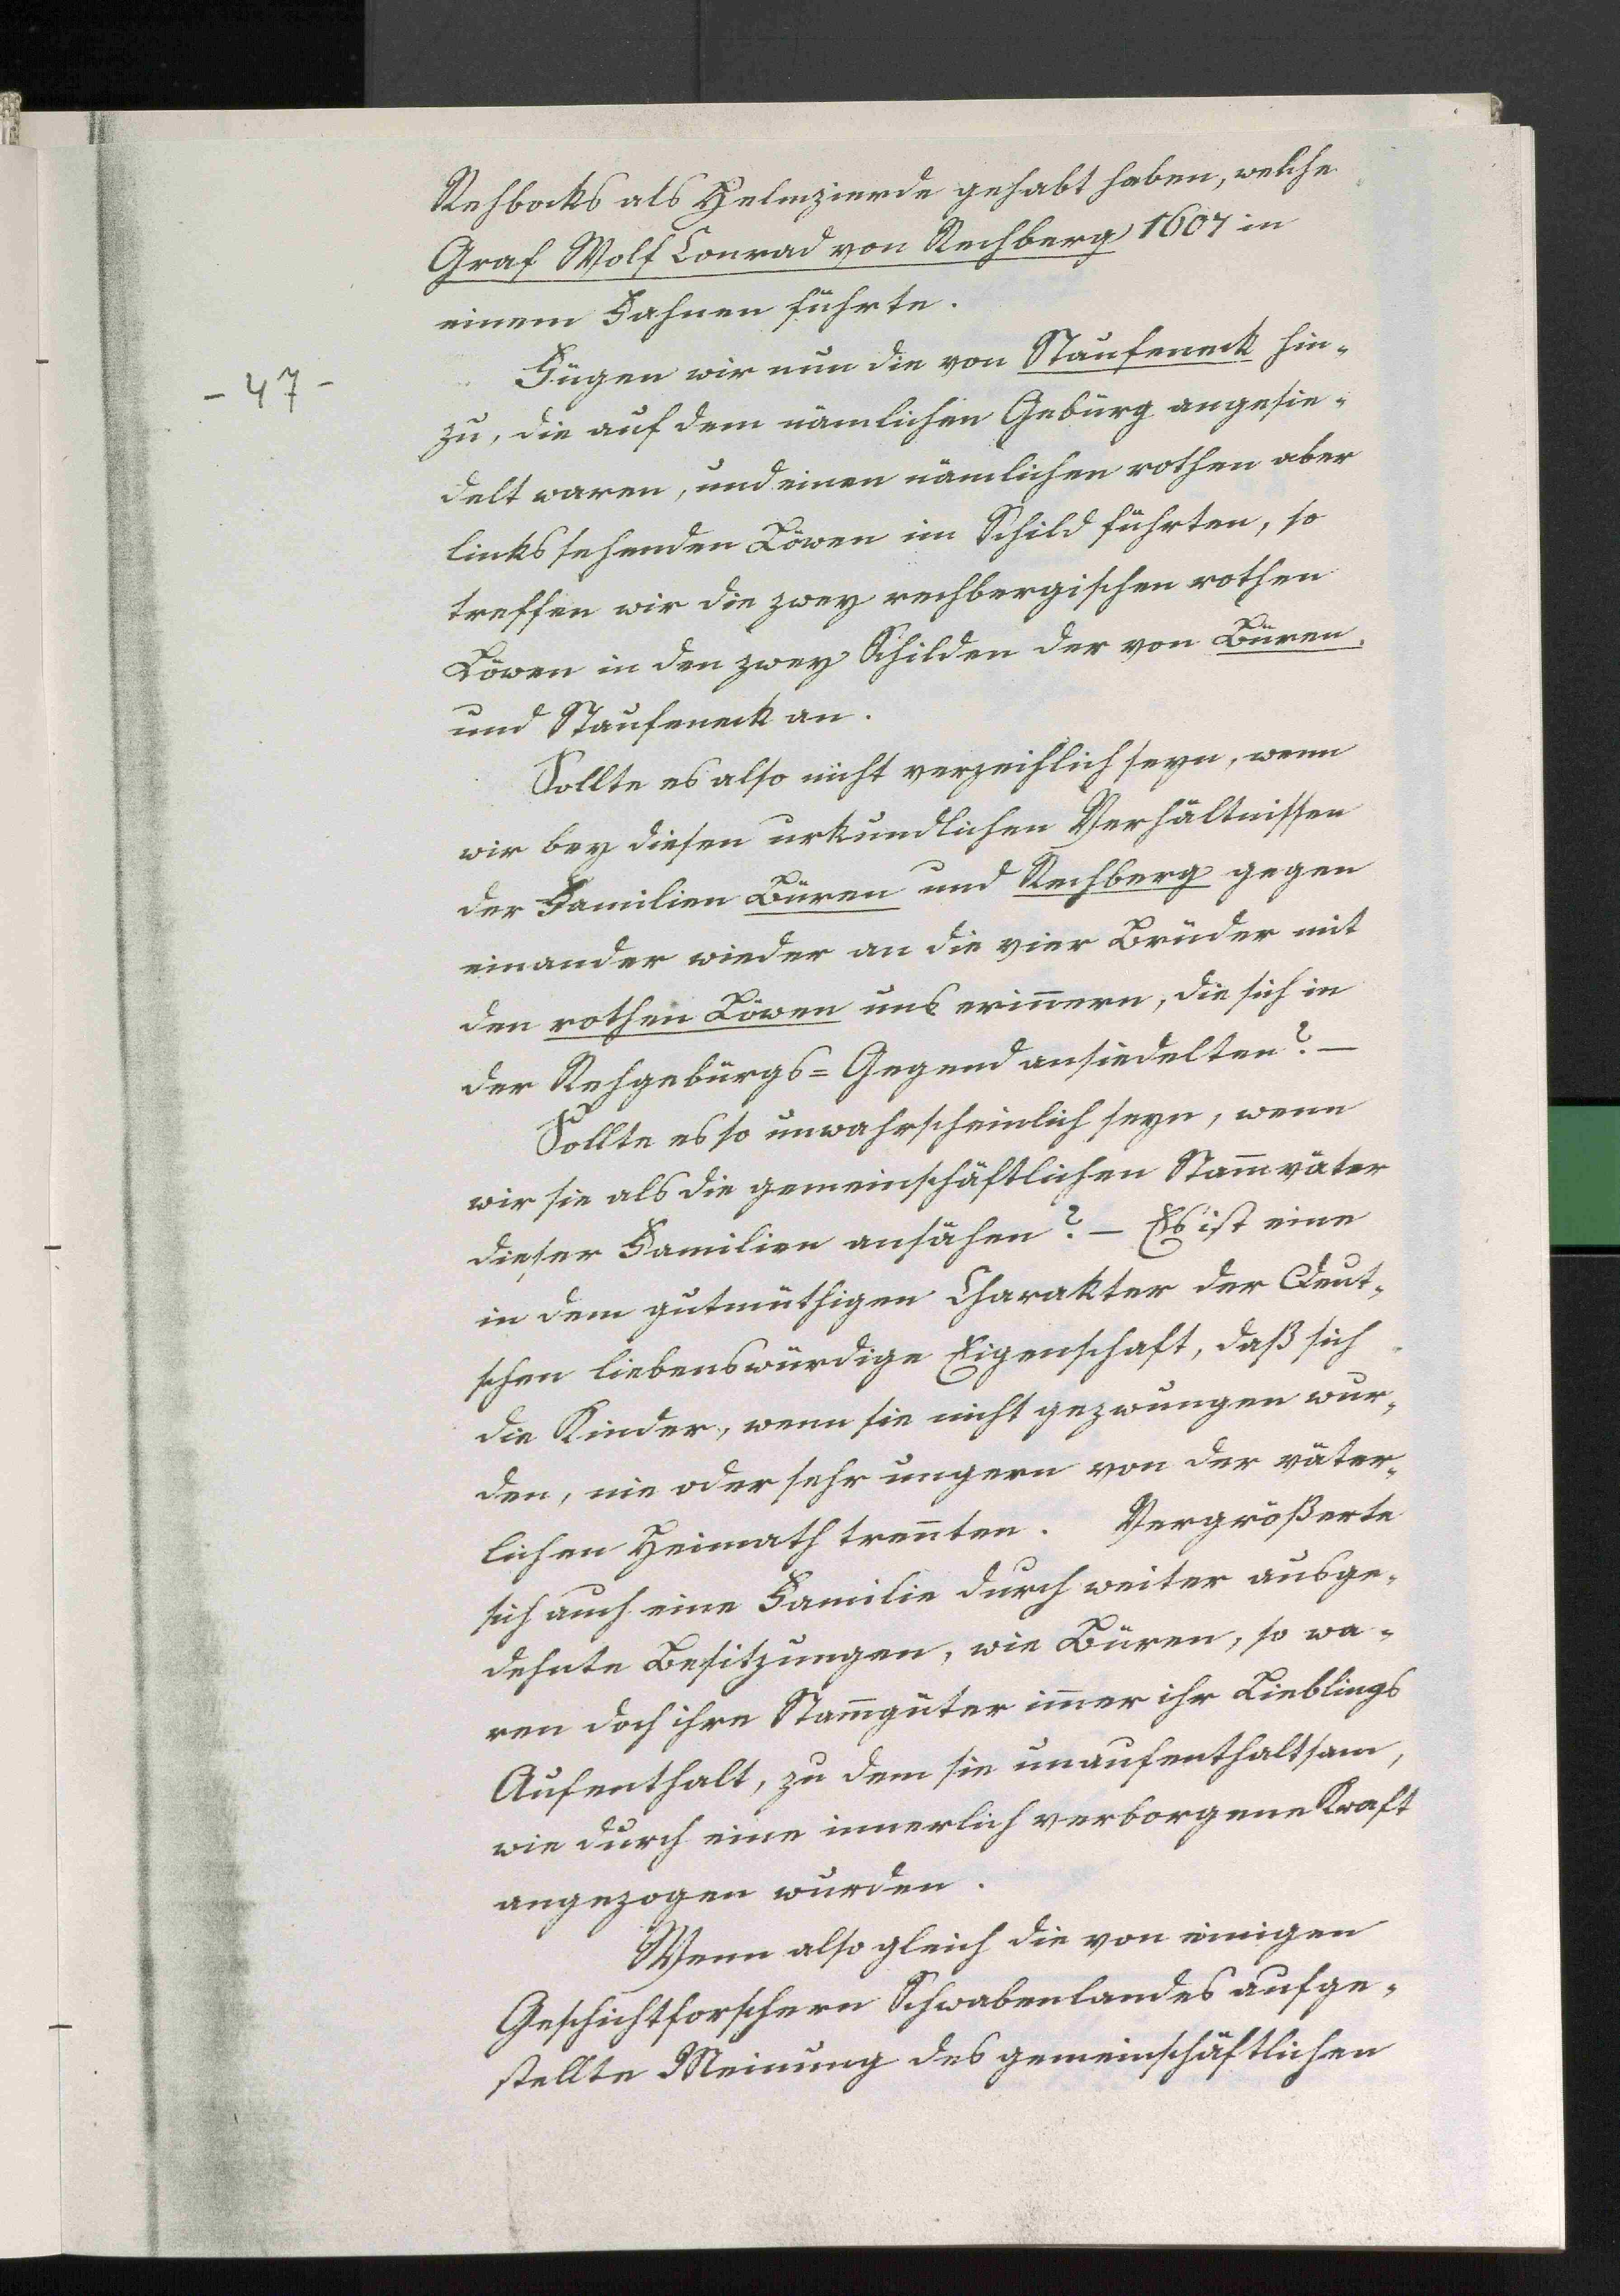 Rehbocks als Helmzierde gehabt haben, welche
Graf Wolf Conrad von Rechberg 1607 in
einem Fahnen führte.
- 47 -
Fügen wir nun die von Staufeneck hin-
zu, die auf dem nämlichen Gebürg angesie-
delt waren, und einen nämlichen rothen aber
links sehenden Löwen im Schild führten, so
treffen wir die zwey rechbergischen rothen
Löwen in den zwey Schilden der von Büren,
und Staufeneck an.
Sollte es also nicht verzeihlich seyn, wenn
wir bey diesen urkundlichen Verhältnissen
der Familien Büren und Rechberg gegen
einander wieder an die vier Brüder mit
den rothen Löwen uns erin̄ern, die sich in
der Rehgebürgs= Gegend ansiedelten? —
Sollte es so unwahrscheinlich seyn, wenn
wir sie als die gemeinschäftlichen Stam̄väter
dieser Familien ansähen? — Es ist eine
in dem gutmüthigen Charakter der Deut-
schen liebenswürdige Eigenschaft, daß sich
die Kinder, wenn sie nicht gezwungen wur-
den, nie oder sehr ungern von der väter-
lichen Heimath tren̄ten. Vergrößerte
sich auch eine Familie durch weiter ausge-
dehnte Besitzungen, wie Büren, so wa-
ren doch ihre Stam̄güter im̄er ihr Lieblings
Aufenthalt, zu dem sie unaufenthaltsam,
wie durch eine innerlich verborgene Kraft
angezogen wurden.
Wenn also gleich die von einigen
Geschichtforschern Schwabenlandes aufge-
stellte Meinung des gemeinschäftlichen